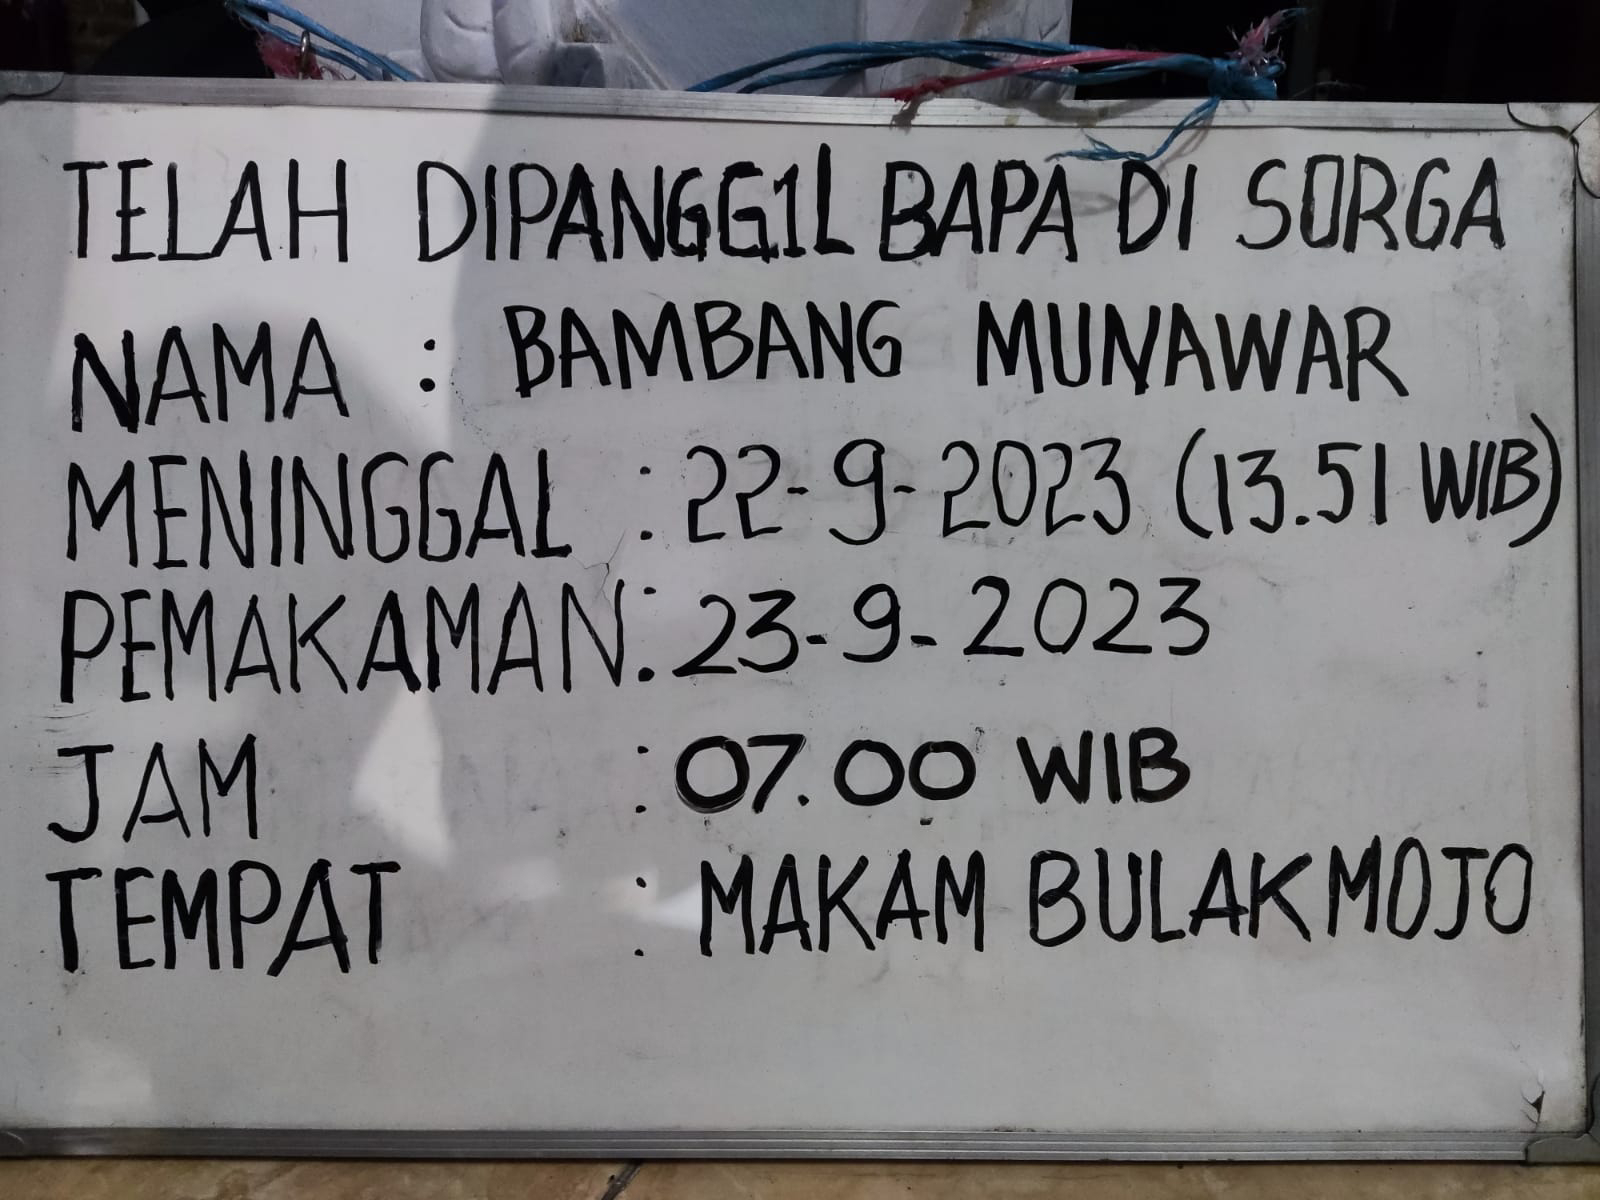 TELAH DIPANGG1L BAPA DI SORGA
NAMA : BAMBANG MUNAWAR
MENINGGAL : 22-9-2023 (13.51 WIB)
PEMAKAMAN : 23-9-2023
JAM : 07.00 WIB
TEMPAT : MAKAM BULAKMOJO